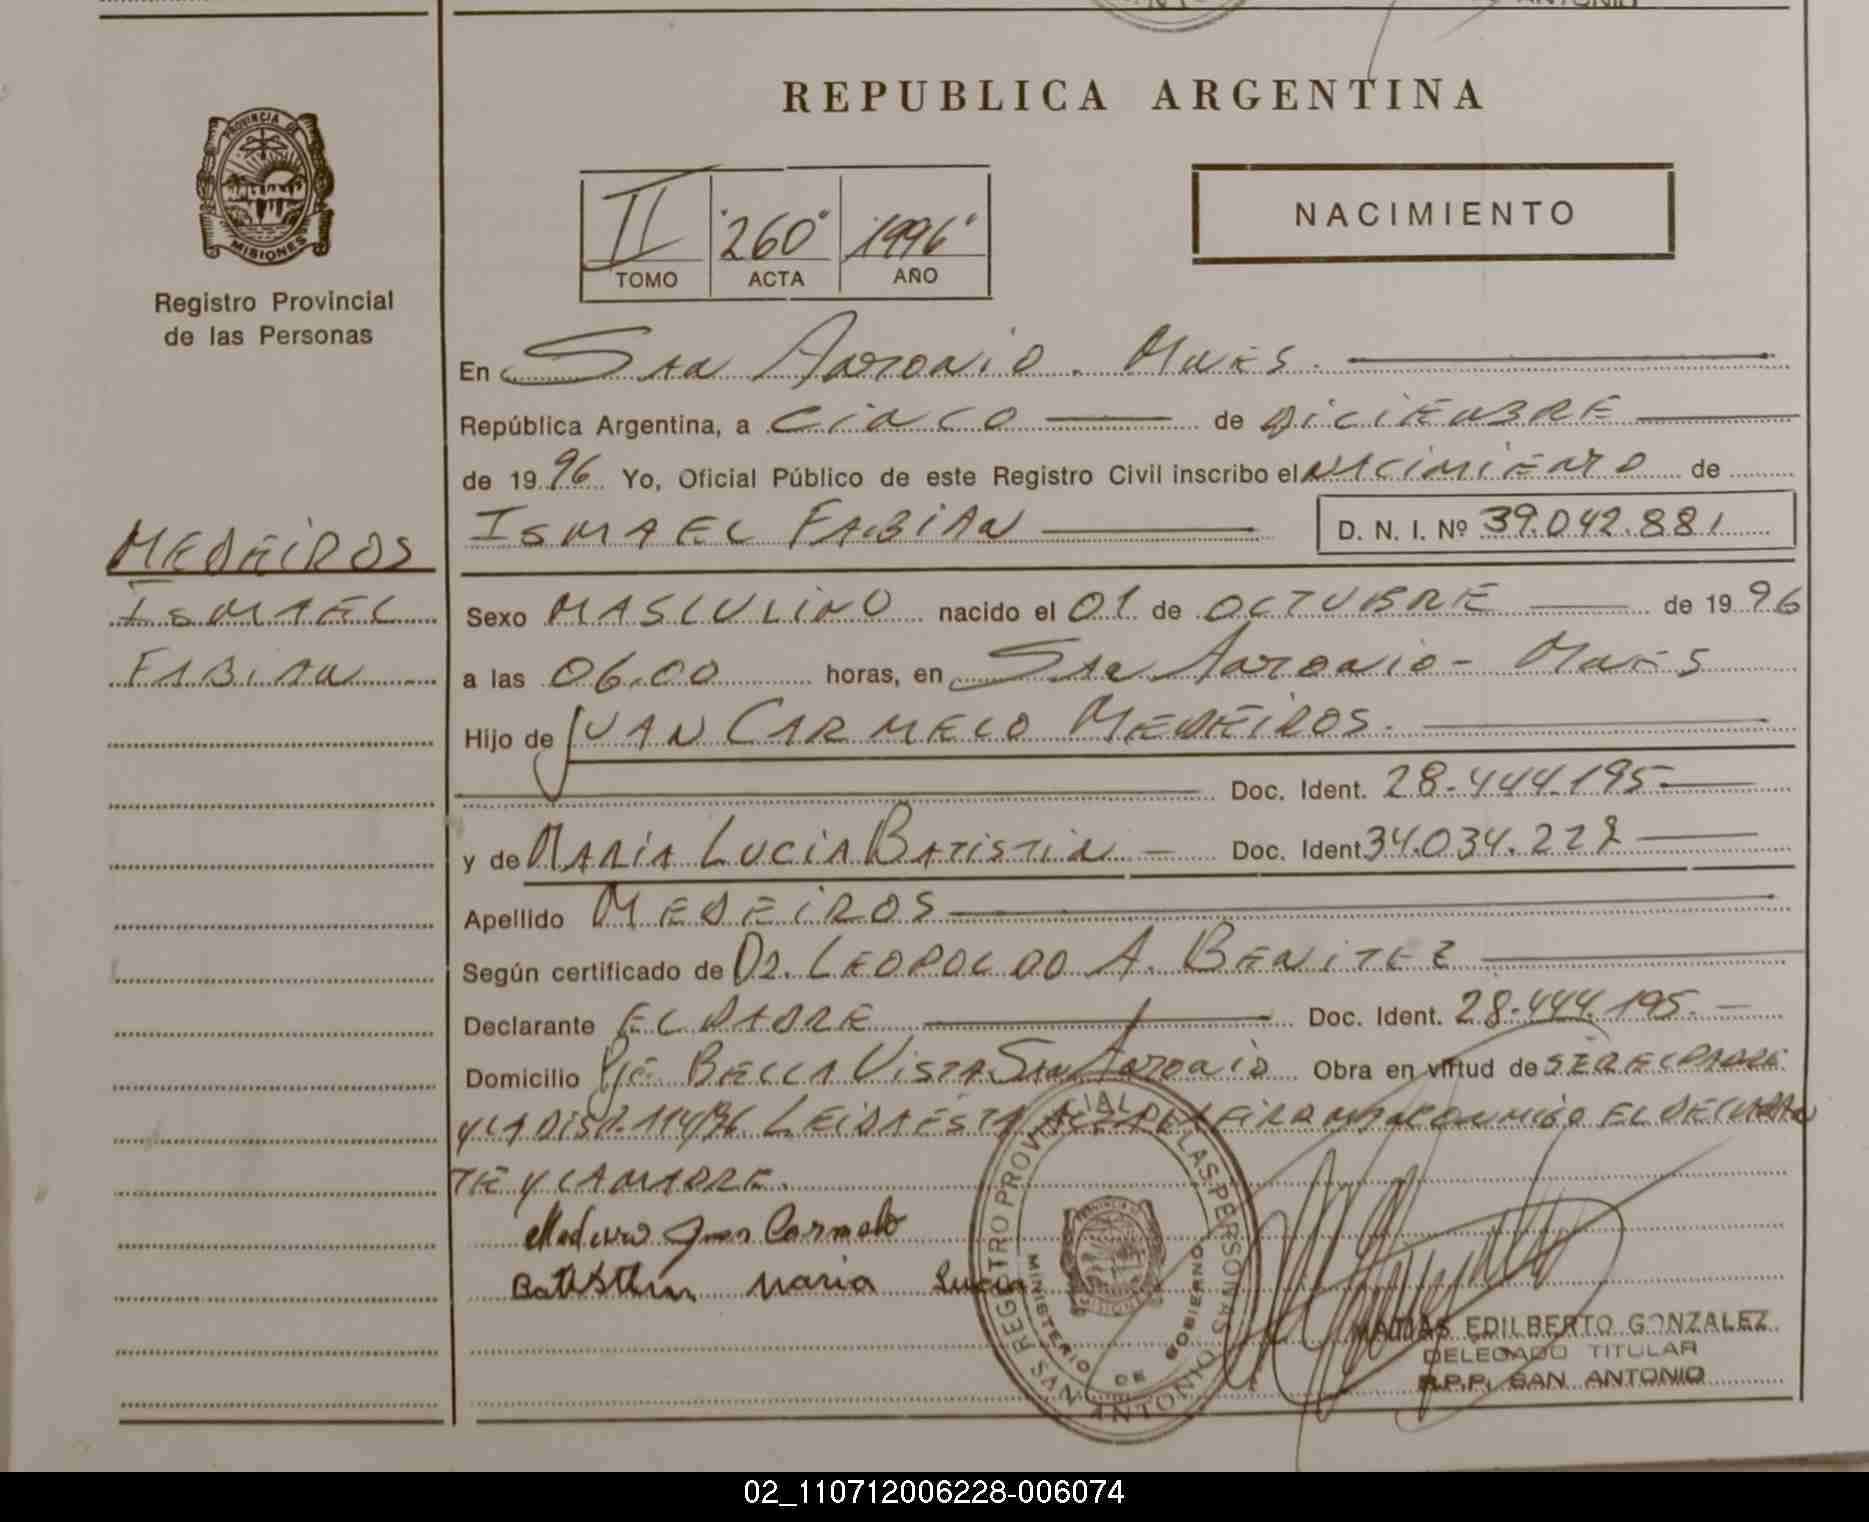 REPUBLICA ARGENTINA
PROVINCIA DE
MISIONES
Registro Provincial
de las Personas
II 260 1996
TOMO ACTA AÑO
NACIMIENTO
En San Antonio. Mnes.
República Argentina, a Cinco de Diciembre
de 1996 Yo, Oficial Público de este Registro Civil inscribo el Nacimiento de
ISMAEL FABIAN D. N. I. Nº 39.042.881
MEDEIROS
ISMAEL
FABIAN
Sexo MASCULINO nacido el 01 de OCTUBRE de 1996
a las 06.00 horas, en San Antonio - Mnes
Hijo de JUAN CARMELO MEDEIROS.
Doc. Ident. 28.444.195
y de MARÍA LUCIA BATISTIN Doc. Ident 34.034.222
Apellido MEDEIROS
Según certificado de Dr. LEOPOLDO A. BENITEZ
Declarante EL PADRE Doc. Ident. 28.444.195.
Domicilio Pje. BELLA VISTA San Antonio Obra en virtud de SER EL PADRE
Y LA DISP. 114/96 LEIDA ESTA ACTA LA FIRMAN CONMIGO EL DECLARAN
TE Y LA MADRE.
Medeiros Juan Carmelo
Maria Lucia
REGISTRO PROVINCIAL DE LAS PERSONAS
MINISTERIO DE GOBIERNO
SAN ANTONIO
MATIAS EDILBERTO GONZALEZ
DELEGADO TITULAR
R.P.P. SAN ANTONIO
02_110712006228-006074